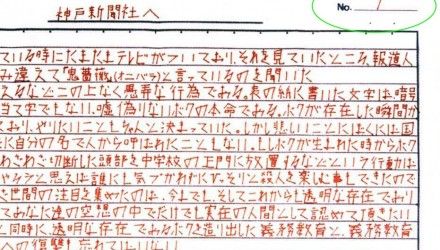 神戸新聞社へ
No. 1
ている時にたまたまテレビがついており、それを見ていたところ、報道人
み違えて「鬼薔薇」(オニバラ)と言っているのを聞いた
えるなどこの上なく愚弄な行為である。表の紙に書いた文字は暗号
当て字でもない。嘘偽りないボクの本命である。ボクが存在した瞬間か
おり、やりたいこともちゃんと決まっていた。しかし悲しいことにぼくには国
に自分の名で人から呼ばれたこともない。もしボクが生まれた時からボク
わざわざ切断した頭部を中学校の正門に放置するなどという行動は
やろうと思えば誰にも気づかれずにひっそりと殺人を楽しむ事もできたので
世間の注目を集めたのは、今までも、そしてこれからも透明な存在であり
てあなた達の空想の中でだけでも実在の人間として認めて頂きたい
同時に、透明な存在であるボクを造り出した義務教育と、義務教育
への復讐も忘れてはいない